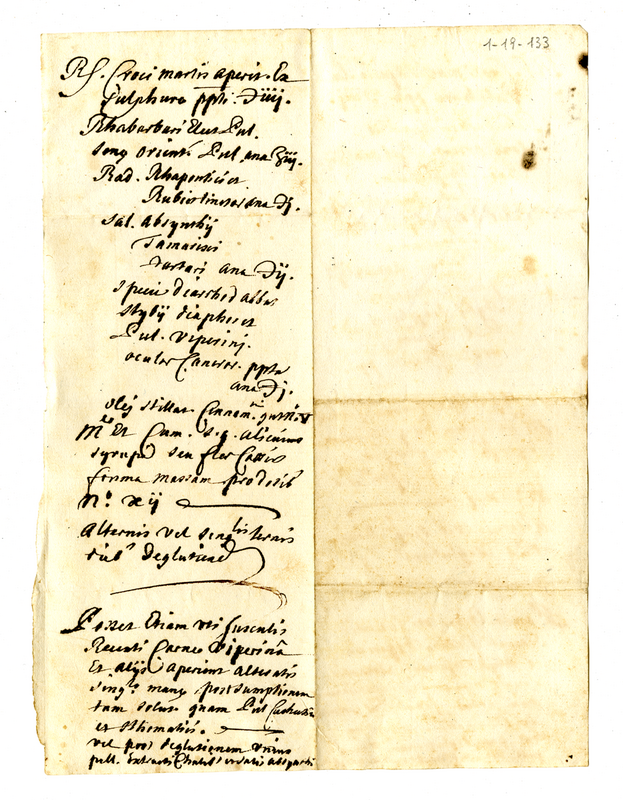 1-19-133
Rs. Croci martis aperit. Ex
sulphure ppti. ʒiiij.
Rhabarbari Elect Pul.
seng orient. Pul ana ʒiij.
Rad. Rhapontici et
Rubiæ tinctor ana ʒj.
sal. absynthij
Tamarisci
Tartari ana ʒij.
specie diarrhod abbat
stybij diaphoret
Pul. viperinj.
ocular Cancror. ppta
ana ʒj.
olej stillat. Cinnam.
Et Cum. s.q. alicuius
syrupi seu flor Cassiæ
forma massam pro dosib
N.º xij
Alternis vel singlis ternis
dieb deglutiend
Posset Etiam uti Jusculis
Recenti Carne Viperina
Et alijs aperient alteratis
sing.lis mane post sumptionem
tam solut. quam Pul
et
vel post deglutionem unius
pill. extracti absynthi